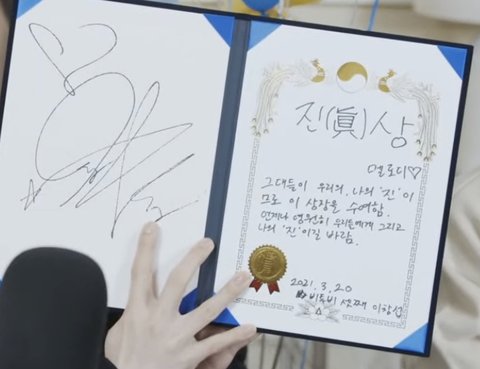 진(眞)상
멜로디♡
그대들이 우리의, 나의 '진'이
므로 이 상장을 수여함.
언제나 영원히 우리들에게 그리고
나의 '진'이길 바람.
2021. 3. 20
비투비 셋째 이창섭